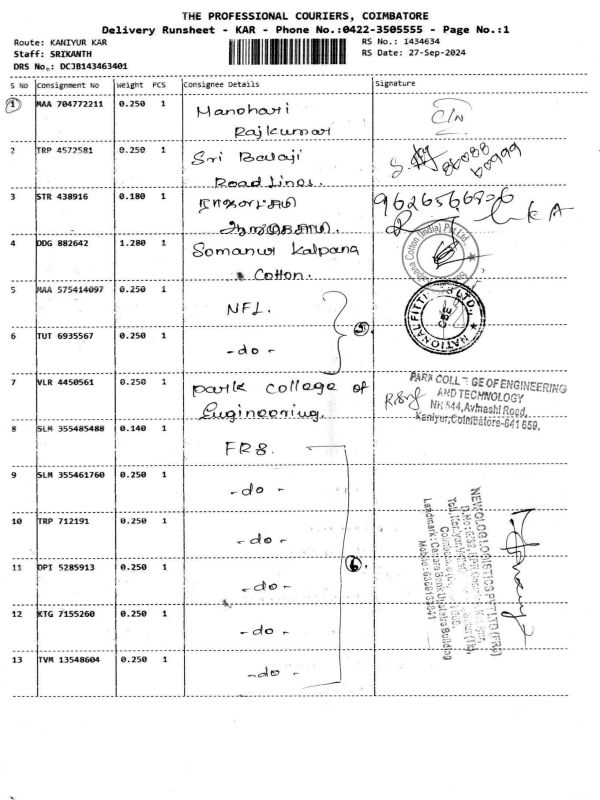 THE PROFESSIONAL COURIERS, COIMBATORE
Delivery Runsheet - KAR - Phone No.:0422-3505555 - Page No.:1
Route: KANIYUR KAR
Staff: SRIKANTH
DRS No.: DCJB143463401
RS No.: 1434634
RS Date: 27-Sep-2024
S No Consignment No Weight PCS Consignee Details Signature
1 MAA 704772211 0.250 1 Manohari
Rajkumar
C/N
2 TRP 4572581 0.250 1 Sri Balaji
Road Lines.
86088
60999
3 STR 438916 0.180 1
9626566826
4 DDG 882642 1.280 1 Somanur Kalpana
Cotton.
Cotton (India) Pvt Ltd.
5 MAA 575414097 0.250 1 NFL.
NATIONAL FITTINGS LTD.,
CBE
6 TUT 6935567 0.250 1 -do-
7 VLR 4450561 0.250 1 park college of
Engineering.
PARK COLLEGE OF ENGINEERING
AND TECHNOLOGY
NH 544, Avinashi Road,
Kaniyur, Coimbatore-641 659.
8 SLM 355485488 0.140 1 FR8.
9 SLM 355461760 0.250 1 -do-
10 TRP 712191 0.250 1 -do-
11 DPI 5285913 0.250 1 -do-
6.
12 KTG 7155260 0.250 1 -do-
13 TVM 13548604 0.250 1 -do-
NEWOLOGI LOGISTICS PVT LTD (FR8)
Landmark: Canara Bank Upstairs Building